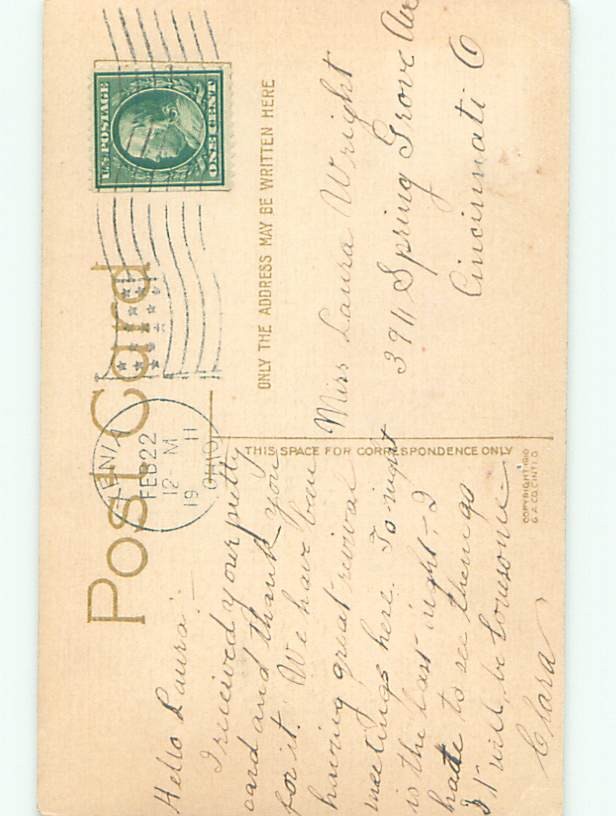 Post Card
U.S. POSTAGE
ONE CENT
XENIA
FEB 22
12 - M
19 11
OHIO
ONLY THE ADDRESS MAY BE WRITTEN HERE
Miss Laura Wright
Spring Grove Ave
Cincinnati O
THIS SPACE FOR CORRESPONDENCE ONLY
COPYRIGHT 1910
G. A. CO. CIN'TI O.
Hello Laura:-
I received your pretty
card and thank you
for it. We have been
having great revival
meetings here. To night
is the last night - I
hate to see them go
It will be lonesome -
Clara